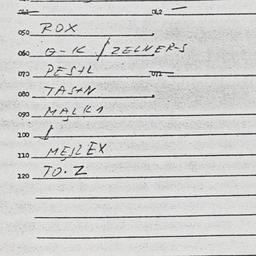 041 042 –
050 ROX
060 G-K / ZELNER-S
070 PES+L 071
080 TAS+N
090 MALKA
100 /
110 MEJLEX
120 TO.Z